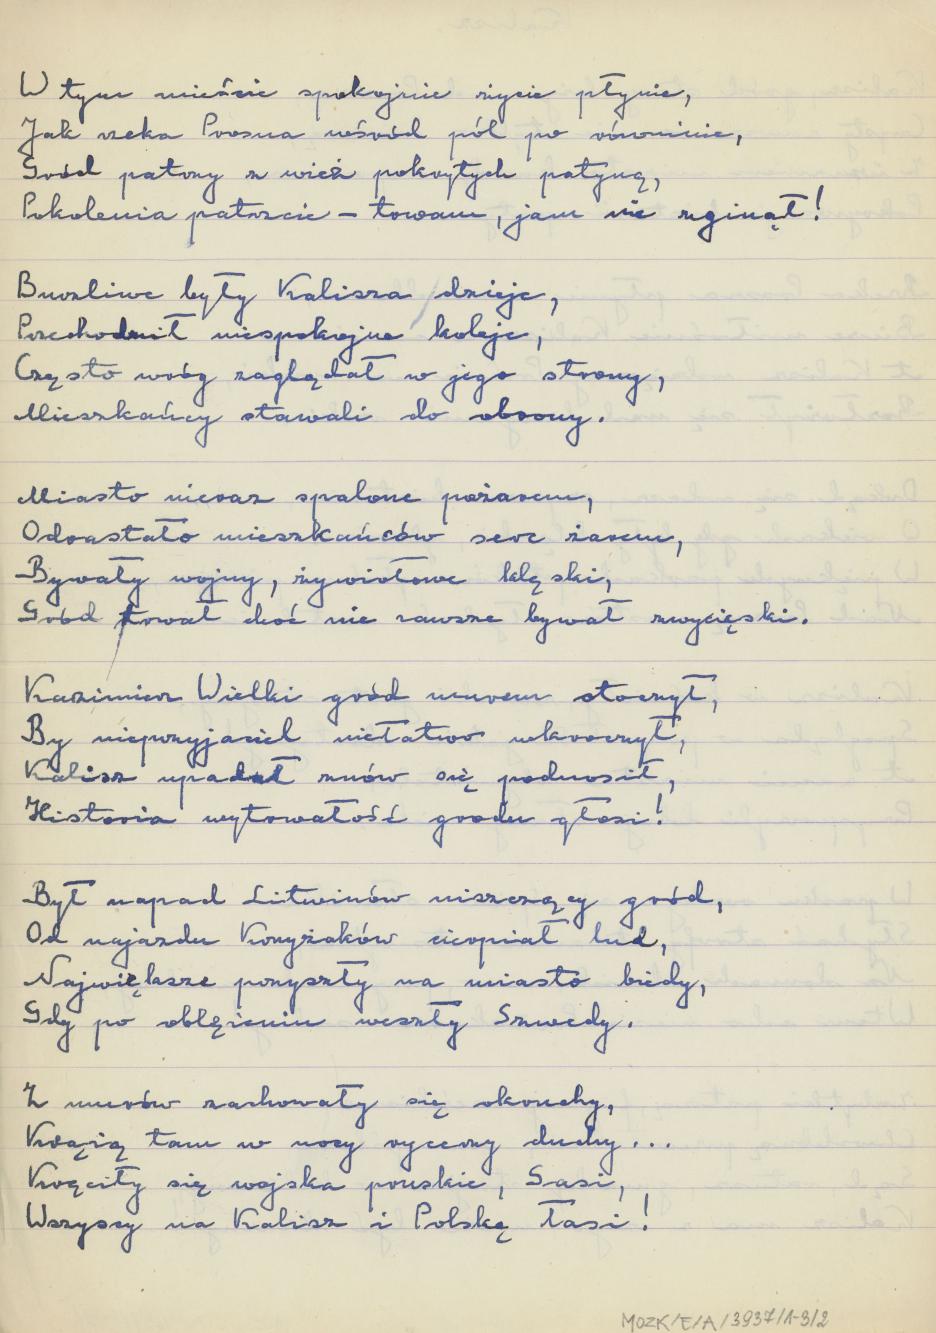 W tym mieście spokojnie życie płynie,
Jak rzeka Prosna wśród pól po równinie,
Gród patrzy z wież pokrytych patyną,
Pokolenia patrzcie – trwam, jam nie zginął!
Burzliwe były Kalisza dzieje,
Przechodził niespokojne koleje,
Często wróg zaglądał w jego strony,
Mieszkańcy stawali do obrony.
Miasto nieraz spalone pożarem,
Odrastało mieszkańców serc żarem,
Bywały wojny, żywiołowe klęski,
Gród trwał choć nie zawsze bywał zwycięski.
Kazimierz Wielki gród murem otoczył,
By nieprzyjaciel niełatwo wkroczył,
Kalisz upadał znów się podnosił,
Historia wytrwałość grodu głosi!
Był napad Litwinów niszczący gród,
Od najazdu Krzyżaków cierpiał lud,
Największe przyszły na miasto biedy,
Gdy po oblężeniu weszły Szwedy.
Z murów zachowały się okruchy,
Krążą tam w nocy rycerzy duchy...
Kręciły się wojska pruskie, Sasi,
Wszyscy na Kalisz i Polskę łasi!
MOZK/E/A/3937/1-3/2